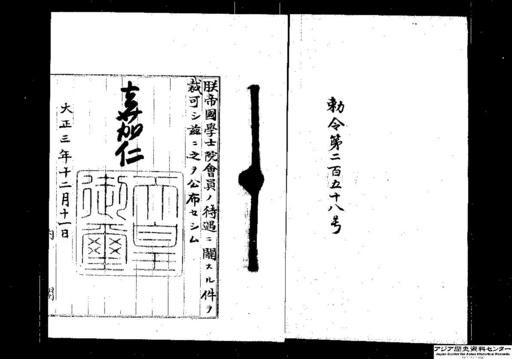 勅令第二百五十八号
朕帝國學士院會員ノ待遇ニ關スル件ヲ
裁可シ茲ニ之ヲ公布セシム
嘉仁
天皇御璽
大正三年十二月十一日
内閣
アジア歴史資料センター
Japan Center for Asian Historical Records